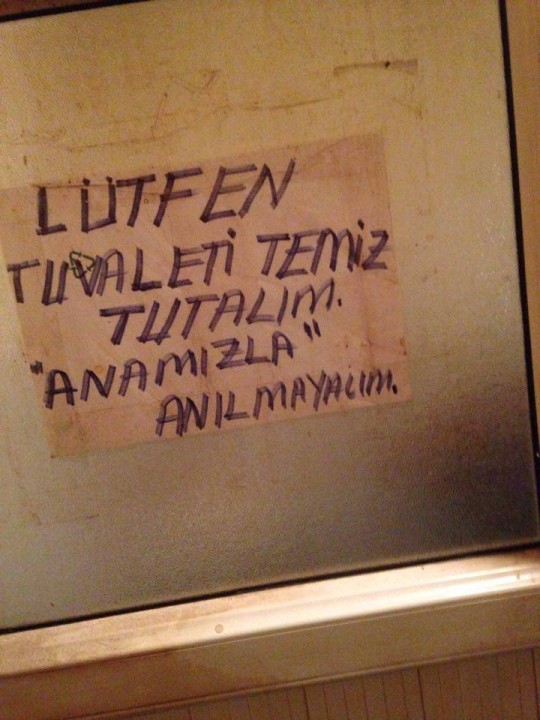 LÜTFEN
TUVALETİ TEMİZ
TUTALIM.
"ANAMIZLA"
ANILMAYALIM.